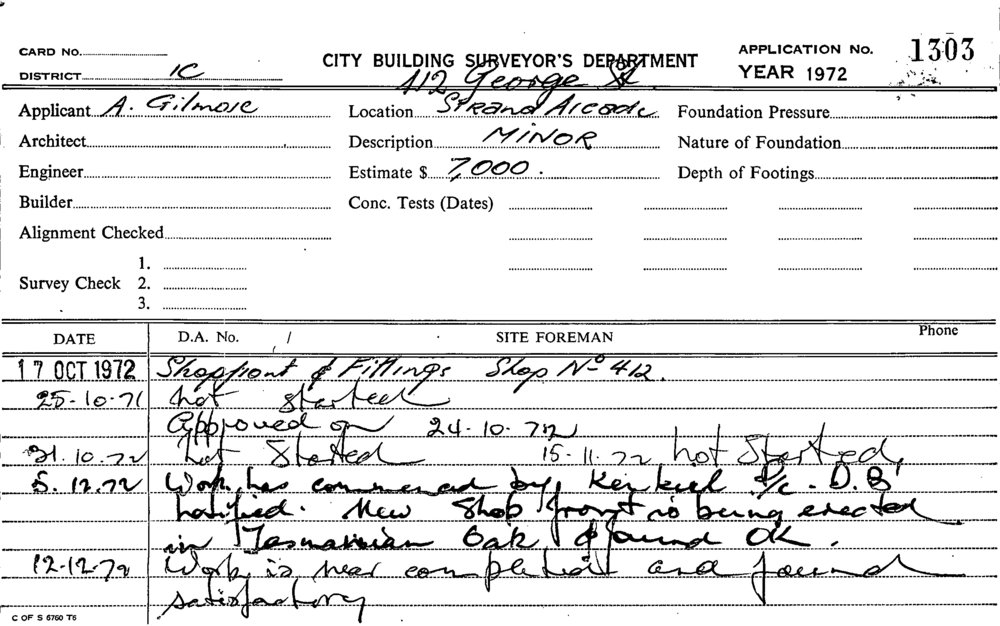 CARD No.
CITY BUILDING SURVEYOR'S DEPARTMENT
APPLICATION No. 1303
DISTRICT 1C
412 George St.
YEAR 1972
Applicant A. Gilmore
Location Strand Arcade
Foundation Pressure
Architect
Description MINOR
Nature of Foundation
Engineer
Estimate $ 7,000.
Depth of Footings
Builder
Conc. Tests (Dates)
Alignment Checked
Survey Check 1.
2.
3.
DATE D.A. No. / SITE FOREMAN Phone
17 OCT 1972 Shopfront & Fittings Shop No 412.
25-10-71 not started
Approved on 24-10-72
31.10.72 not Started 15-11-72 not Started.
5.12.72 Work has commenced by D.B
notified. New Shop front is being erected
in Tasmanian Oak & found OK.
12-12-72 Work is near completion and found
satisfactory
C OF S 6760 T6